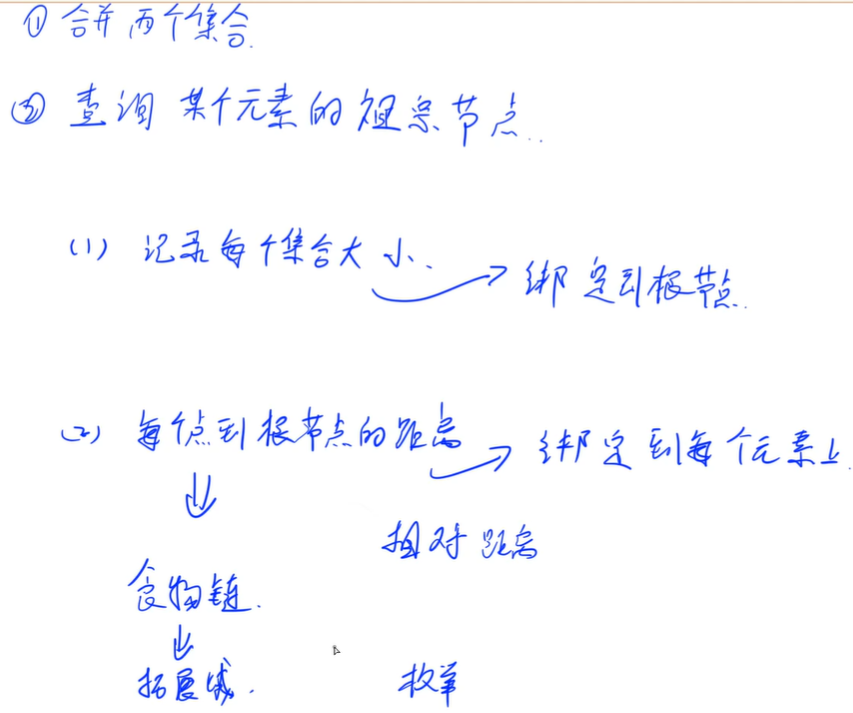 ① 合并两个集合.
② 查询某个元素的祖宗节点..
(1) 记录每个集合大小. 绑定到根节点..
(2) 每个点到根节点的距离 绑定到每个元素上.
相对距离
食物链.
拓展域. 枚举